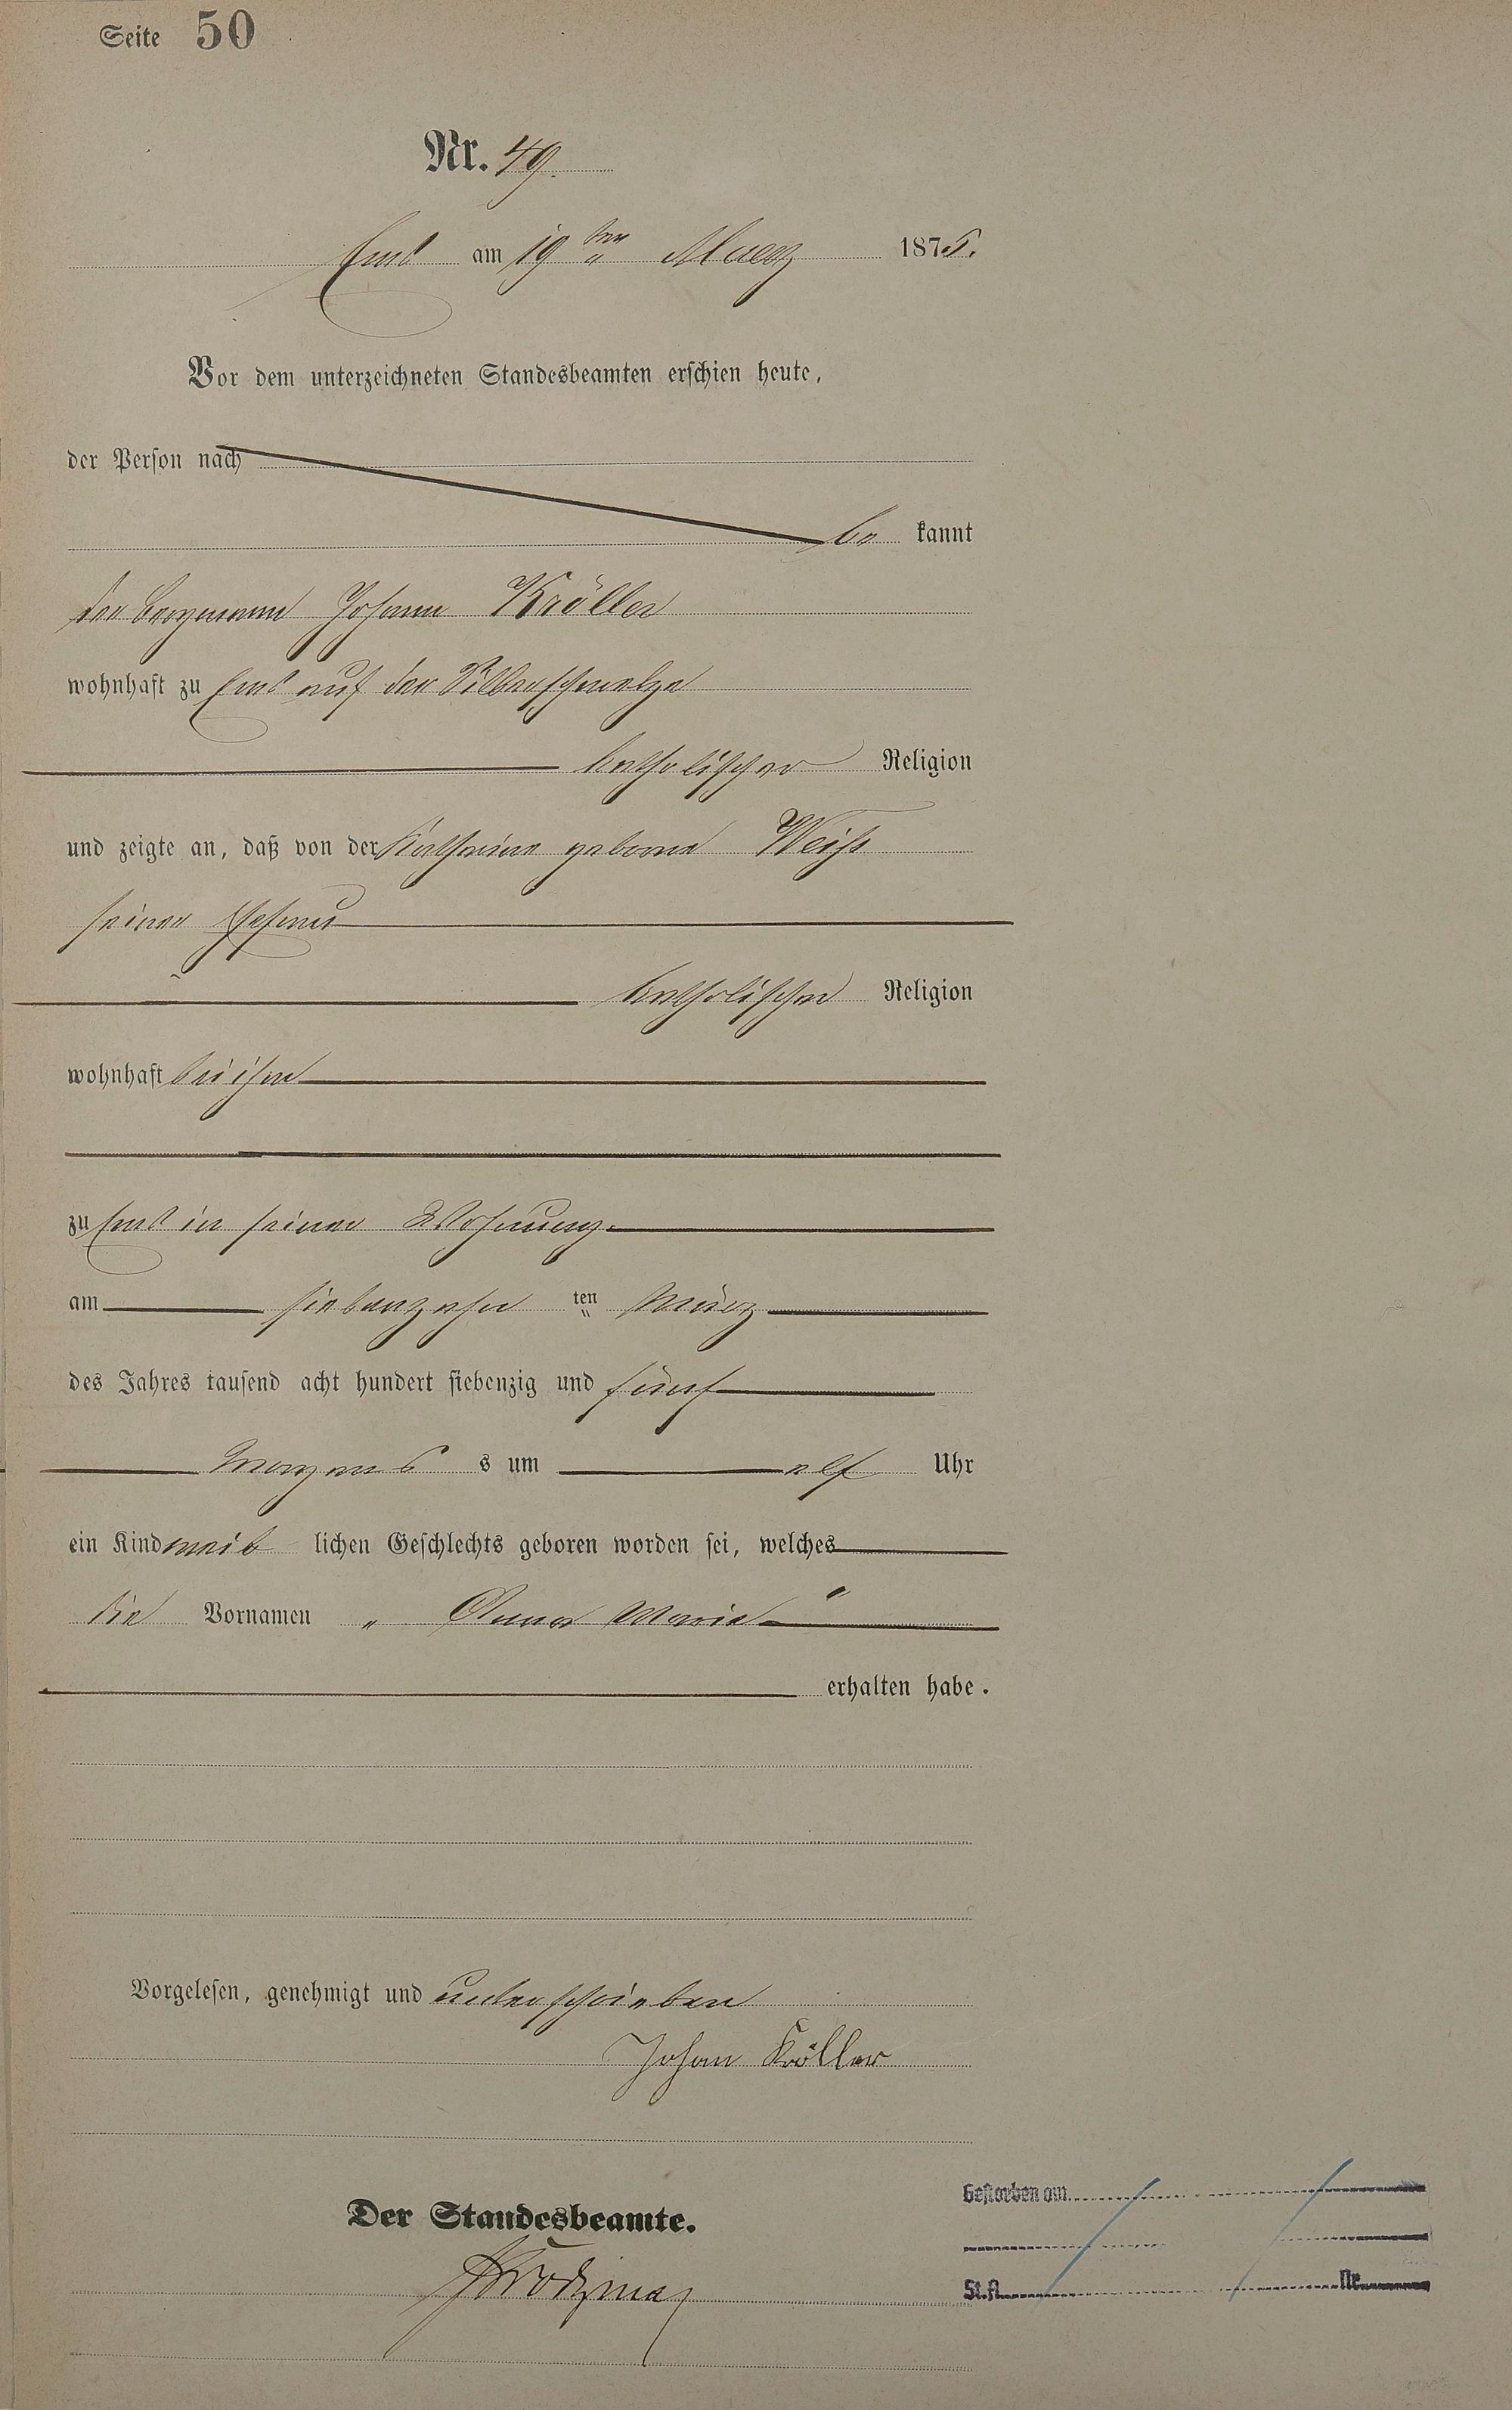 Seite 50
Nr. 49.
Ems am 19ten Maerz 1875.
Vor dem unterzeichneten Standesbeamten erschien heute,
der Person nach
be kannt
der Bergmann Johann Kröller
wohnhaft zu Ems auf der Silberschmelze
katholischer Religion
und zeigte an, daß von der Katharina geborene Weiß
seiner Ehefrau
katholischer Religion
wohnhaft bei ihm
zu Ems in seiner Wohnung
am siebenzehn ten März
des Jahres tausend acht hundert siebenzig und fünf
Morgens s um elf Uhr
ein Kind weib lichen Geschlechts geboren worden sei, welches
die Vornamen „ Anna Maria "
erhalten habe.
Vorgelesen, genehmigt und unterschrieben
Johan Kröller
Der Standesbeamte.
Gestorben am
St.A. Nr.